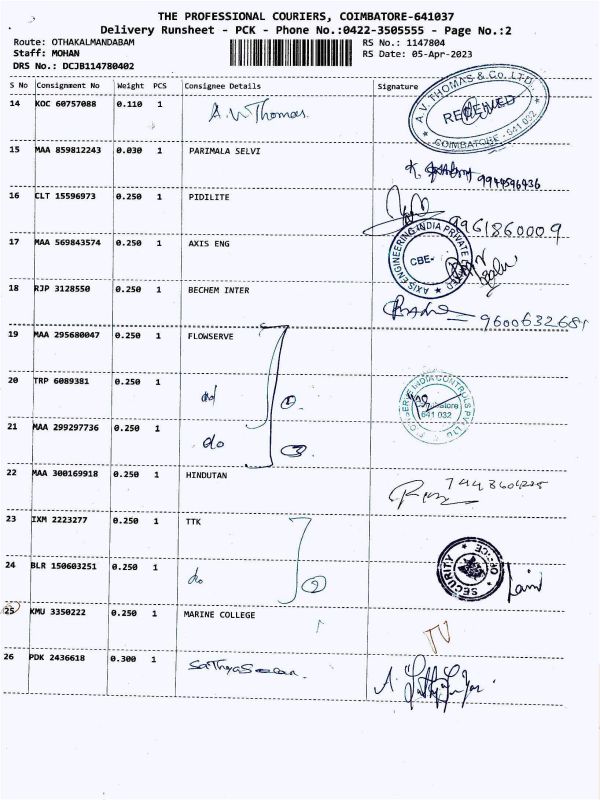 THE PROFESSIONAL COURIERS, COIMBATORE-641037
Delivery Runsheet - PCK - Phone No.:0422-3505555 - Page No.:2
Route: OTHAKALMANDABAM RS No.: 1147804
Staff: MOHAN RS Date: 05-Apr-2023
DRS No.: DCJB114780402
S No Consignment No Weight PCS Consignee Details Signature
14 KOC 60757088 0.110 1 A.V Thomas
A.V. THOMAS & Co. LTD. RECEIVED COIMBATORE - 641 032
15 MAA 859812243 0.030 1 PARIMALA SELVI
9944596436
16 CLT 15596973 0.250 1 PIDILITE
9961860009
17 MAA 569843574 0.250 1 AXIS ENG
AXIS ENGINEERING INDIA PRIVATE LIMITED CBE-
18 RJP 3128550 0.250 1 BECHEM INTER
9600632681
19 MAA 295680047 0.250 1 FLOWSERVE
20 TRP 6089381 0.250 1 do
INDIA CONTROLS PVT LTD 641 032
21 MAA 299297736 0.250 1 do 3
22 MAA 300169918 0.250 1 HINDUTAN
23 IXM 2223277 0.250 1 TTK
24 BLR 150603251 0.250 1 do 2
SECURITY OFFICE
25 KMU 3350222 0.250 1 MARINE COLLEGE
26 PDK 2436618 0.300 1